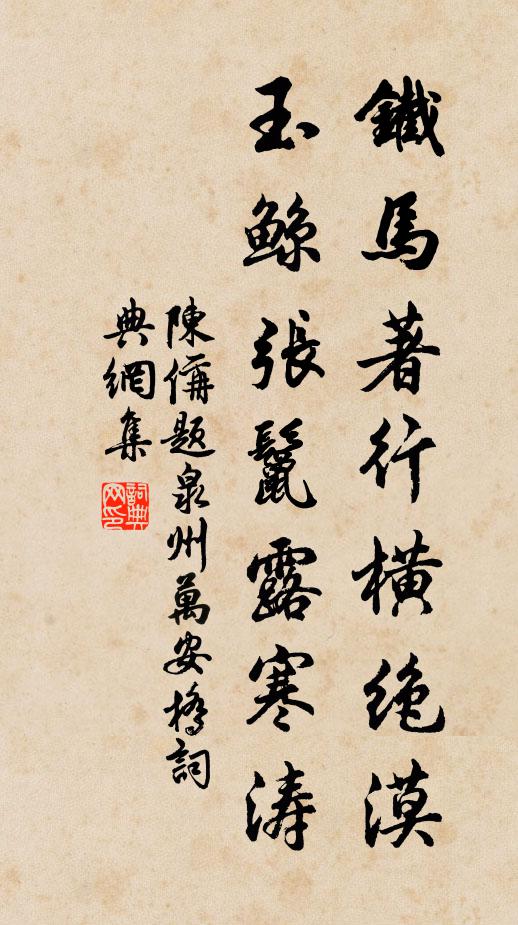 鐵馬著行橫絕漠
玉鯨張鬣露寒濤
陳偁題泉州萬安橋詞
典網集
詞典網印